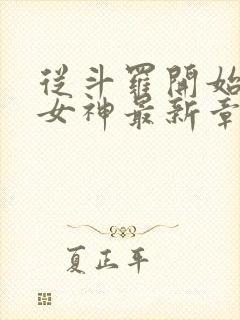 從斗羅開始
女神最新章
夏正平